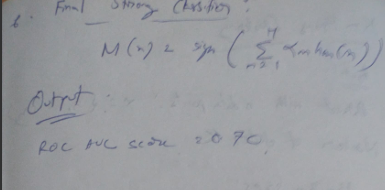 6. Final Strong Classifier :
M(x) = sign ( ∑ᴹₘ₌₁ αₘ hₘ(x) )
Output
ROC AUC score = 0.70